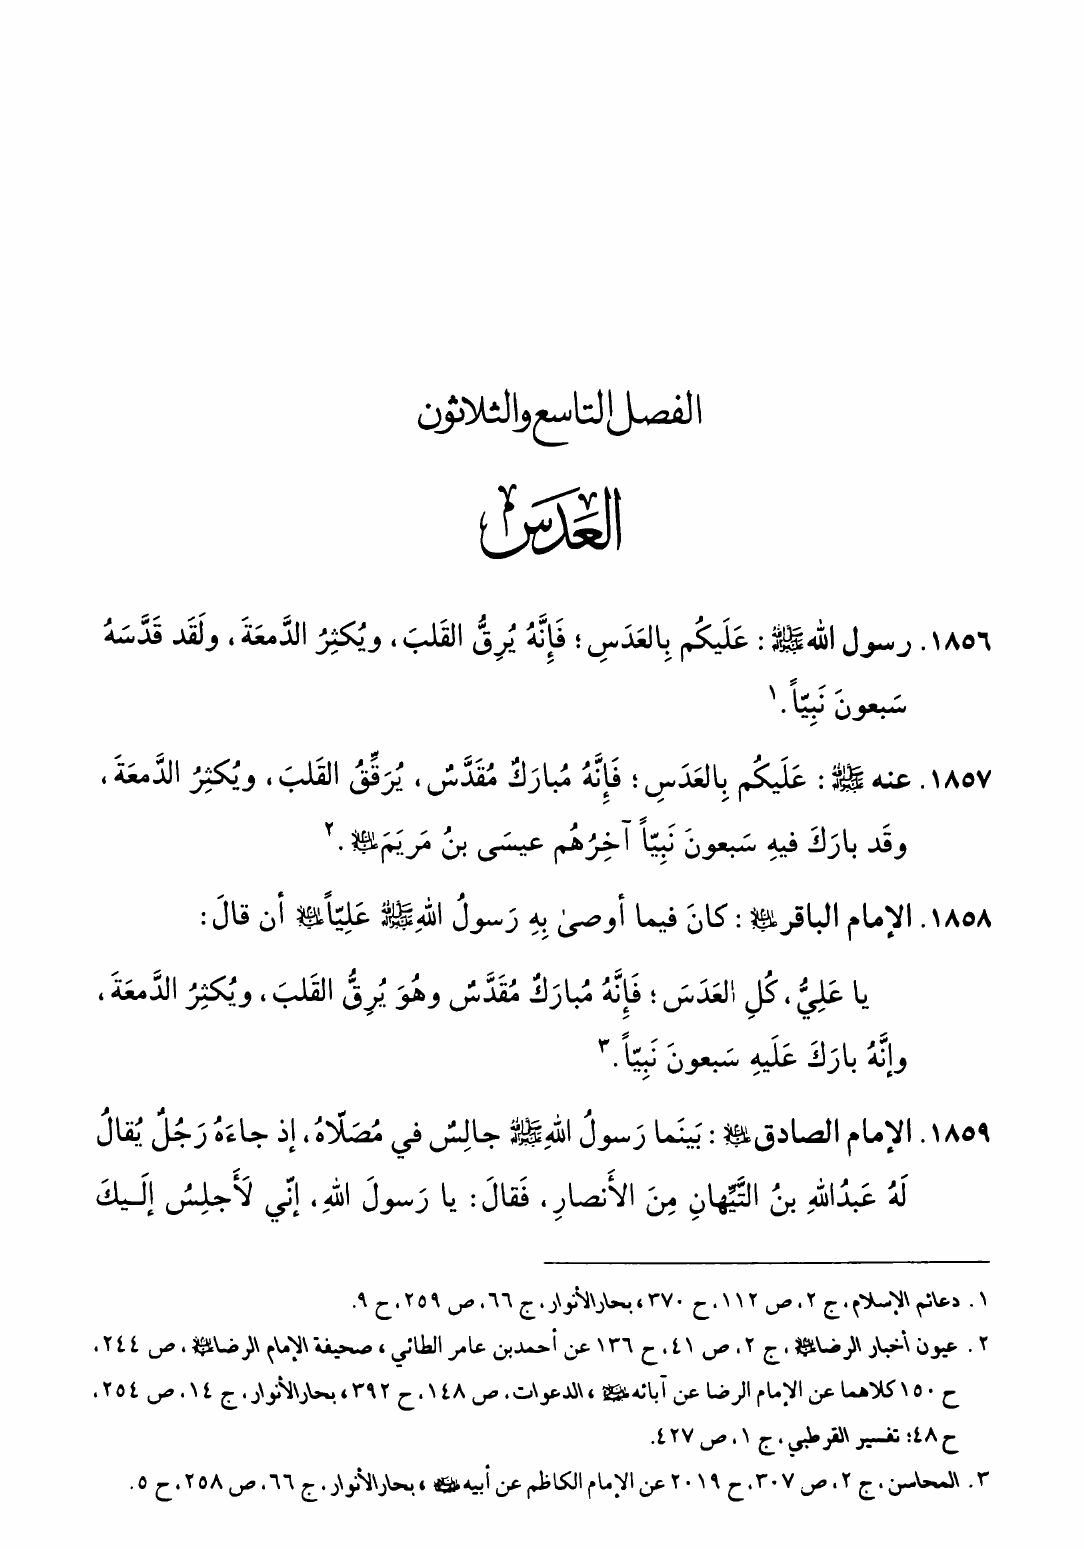 الفصل التاسع والثلاثون
العَدَس
١٨٥٦. رسول الله ﷺ: عَلَيكُم بِالعَدَسِ؛ فَإِنَّهُ يُرِقُّ القَلبَ، ويُكثِرُ الدَّمعَةَ، ولَقَد قَدَّسَهُ
سَبعونَ نَبِيّاً.١
١٨٥٧. عنه ﷺ: عَلَيكُم بِالعَدَسِ؛ فَإِنَّهُ مُبارَكٌ مُقَدَّسٌ، يُرَقِّقُ القَلبَ، ويُكثِرُ الدَّمعَةَ،
وقَد بارَكَ فيهِ سَبعونَ نَبِيّاً آخِرُهُم عيسَى بنُ مَريَمَ ؑ.٢
١٨٥٨. الإمام الباقر ؑ: كانَ فيما أوصىٰ بِهِ رَسولُ اللهِ ﷺ عَلِيّاً ؑ أن قالَ:
يا عَلِيُّ، كُلِ العَدَسَ؛ فَإِنَّهُ مُبارَكٌ مُقَدَّسٌ وهُوَ يُرِقُّ القَلبَ، ويُكثِرُ الدَّمعَةَ،
وإنَّهُ بارَكَ عَلَيهِ سَبعونَ نَبِيّاً.٣
١٨٥٩. الإمام الصادق ؑ: بَينَما رَسولُ اللهِ ﷺ جالِسٌ في مُصَلّاهُ، إذ جاءَهُ رَجُلٌ يُقالُ
لَهُ عَبدُاللهِ بنُ التَّيِّهانِ مِنَ الأَنصارِ، فَقالَ: يا رَسولَ اللهِ، إنّي لَأَجلِسُ إلَـيكَ
١. دعائم الإسلام، ج ٢، ص ١١٢، ح ٣٧٠، بحارالأنوار، ج ٦٦، ص ٢٥٩، ح ٩.
٢. عيون أخبار الرضا ؑ، ج ٢، ص ٤١، ح ١٣٦ عن أحمدبن عامر الطائي، صحيفة الإمام الرضا ؑ، ص ٢٤٤،
ح ١٥٠ كلاهما عن الإمام الرضا عن آبائه ؑ، الدعوات، ص ١٤٨، ح ٣٩٢، بحارالأنوار، ج ١٤، ص ٢٥٤،
ح ٤٨؛ تفسير القرطبي، ج ١، ص ٤٢٧.
٣. المحاسن، ج ٢، ص ٣٠٧، ح ٢٠١٩ عن الإمام الكاظم عن أبيه ؑ، بحارالأنوار، ج ٦٦، ص ٢٥٨، ح ٥.